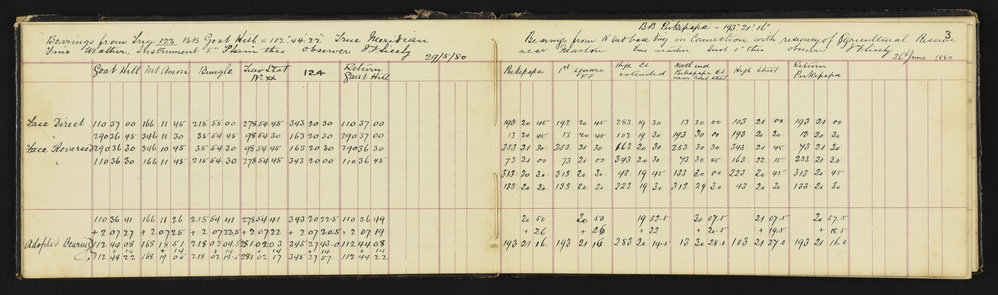 Bearings from Trig 123 B.B Goat Hill = 112° 44' 22" True Meridian
Fine Weather, Instrument 5" Observer
29/5/80
Goat Hill Bungle 12A Return Goat Hill
Face Direct 110 37 00 166 11 45 215 55 00 278 54 45 343 20 30 110 37 00
" 290 36 45 346 11 30 35 54 45 98 54 30 163 20 30 290 37 00
Face Reversed 290 36 30 346 10 45 35 54 30 98 54 45 163 20 30 290 36 30
" 110 36 30 166 11 45 215 54 30 278 54 45 343 20 00 110 36 45
110 36 41 166 11 26 215 54 41 278 54 41 343 20 22.5 110 36 49
+ 2 07 27 + 2 07 25 + 2 07 23.5 + 2 07 22 + 2 07 20.5 + 2 07 19
Adopted Bearing 112 44 08 168 18 51 218 02 04.5 281 02 03 345 27 43.0 112 44 08
+ 14 + 14 + 14 + 14 + 14
112 44 22 168 19 05 218 02 18.5 281 02 17 345 27 57 112 44 22
B.B Pukepapa = 193° 21' 16"
3
Bearings from N End base Trig in Connection with resurvey of Agricultural Reserve
near Marton fine weather Inst 5" Observer
26th June 1880
Pukepapa 1st square High St extended North end Pukepapa Rd High Street Return Pukepapa
193 20 45 193 20 45 283 19 30 13 30 00 103 21 00 193 21 00
13 20 45 13 20 45 103 19 30 193 30 00 193 20 30 13 20 30
253 21 30 253 21 30 163 20 30 253 30 30 343 21 45 73 21 30
73 21 00 73 21 00 343 20 30 73 30 45 163 22 15 253 21 30
313 20 30 313 20 30 43 19 45 133 30 00 223 20 45 313 20 45
133 20 30 133 20 30 223 19 30 313 29 30 43 20 30 133 20 30
20 50 20 50 19 52.5 30 07.5 21 07.5 20 57.5
+ 26 + 26 + 22 + 20.5 + 19.5 + 18.5
193 21 16 193 21 16 283 20 14.5 13 30 28.0 103 21 27.0 193 21 16.0